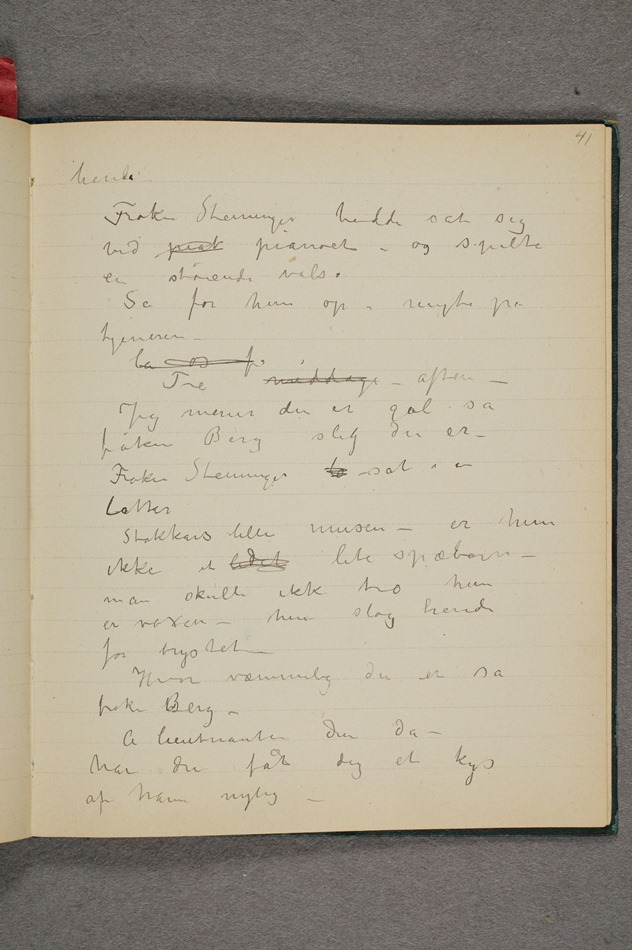 41
hende
Frøken Stenninger hadde sat sig
ved piat pianoet – og spilte
en störende vals.
Sa for hun op – ringte pa
tjeneren –
La os få
Tre middage – aften –
Jeg mener du er gal sa
frøken Berg slig du er –
Frøken Stenninger to sat i en
Latter
Stakkars lille musen – er hun
ikke et lidet lite spæbarn –
man skulle ikk tro hun
er voxen – hun slog hende
for brystet –
Hvor væmmelig du er sa
frøken Berg –
A lieutnanten din da –
har du fåt dig et kys
af ham nylig –